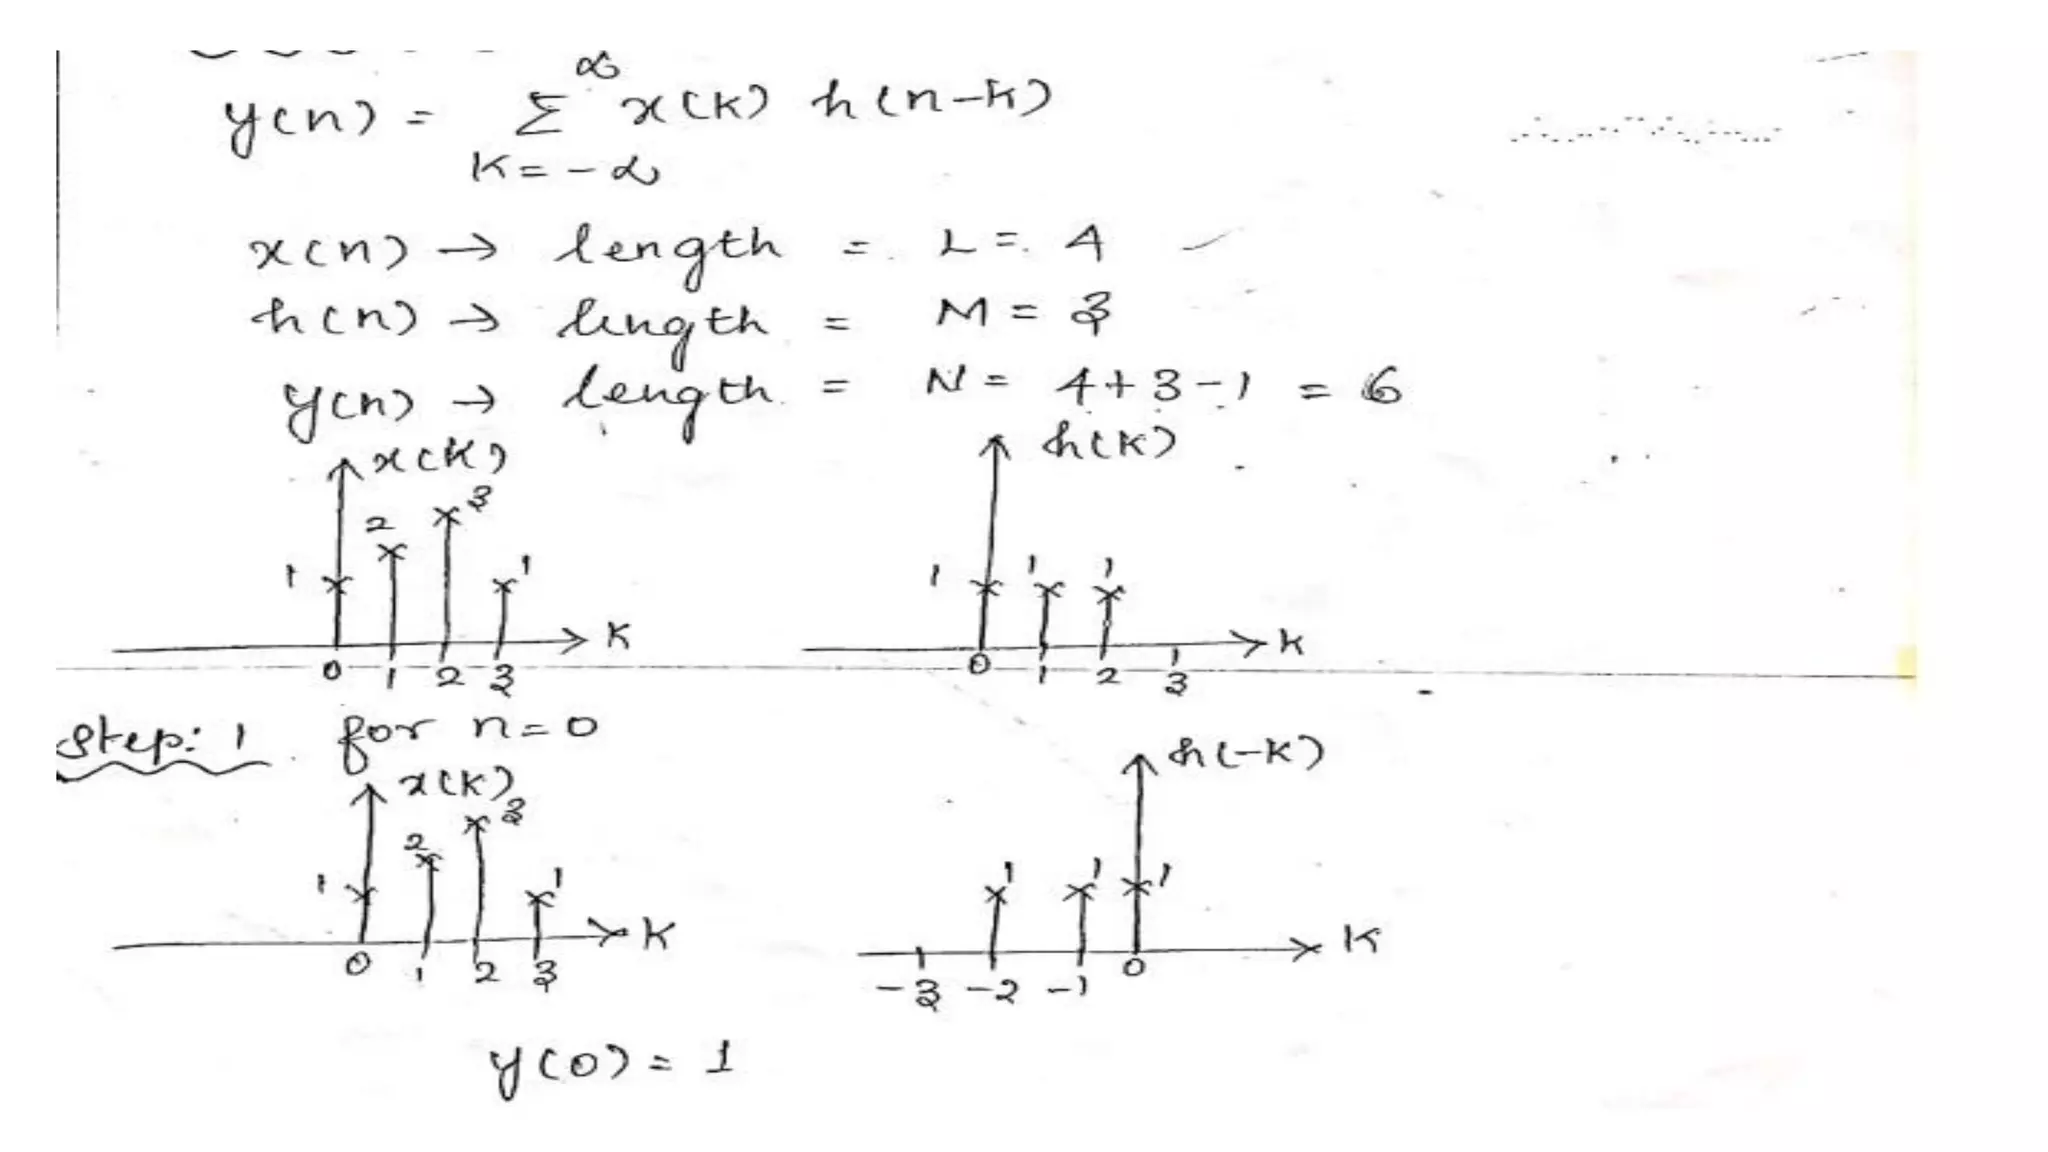 ∞
y(n) = Σ x(k) h(n-k)
K = -∞
x(n) → length = L = 4
h(n) → length = M = 3
y(n) → length = N = 4+3-1 = 6
x(k) h(k)
3
2
1 1 1 1 1
K k
0 1 2 3 0 1 2 3
Step: 1 for n=0
x(k) h(-k)
3
2
1 1 1 1 1
K K
0 1 2 3 -3 -2 -1 0
y(0) = 1